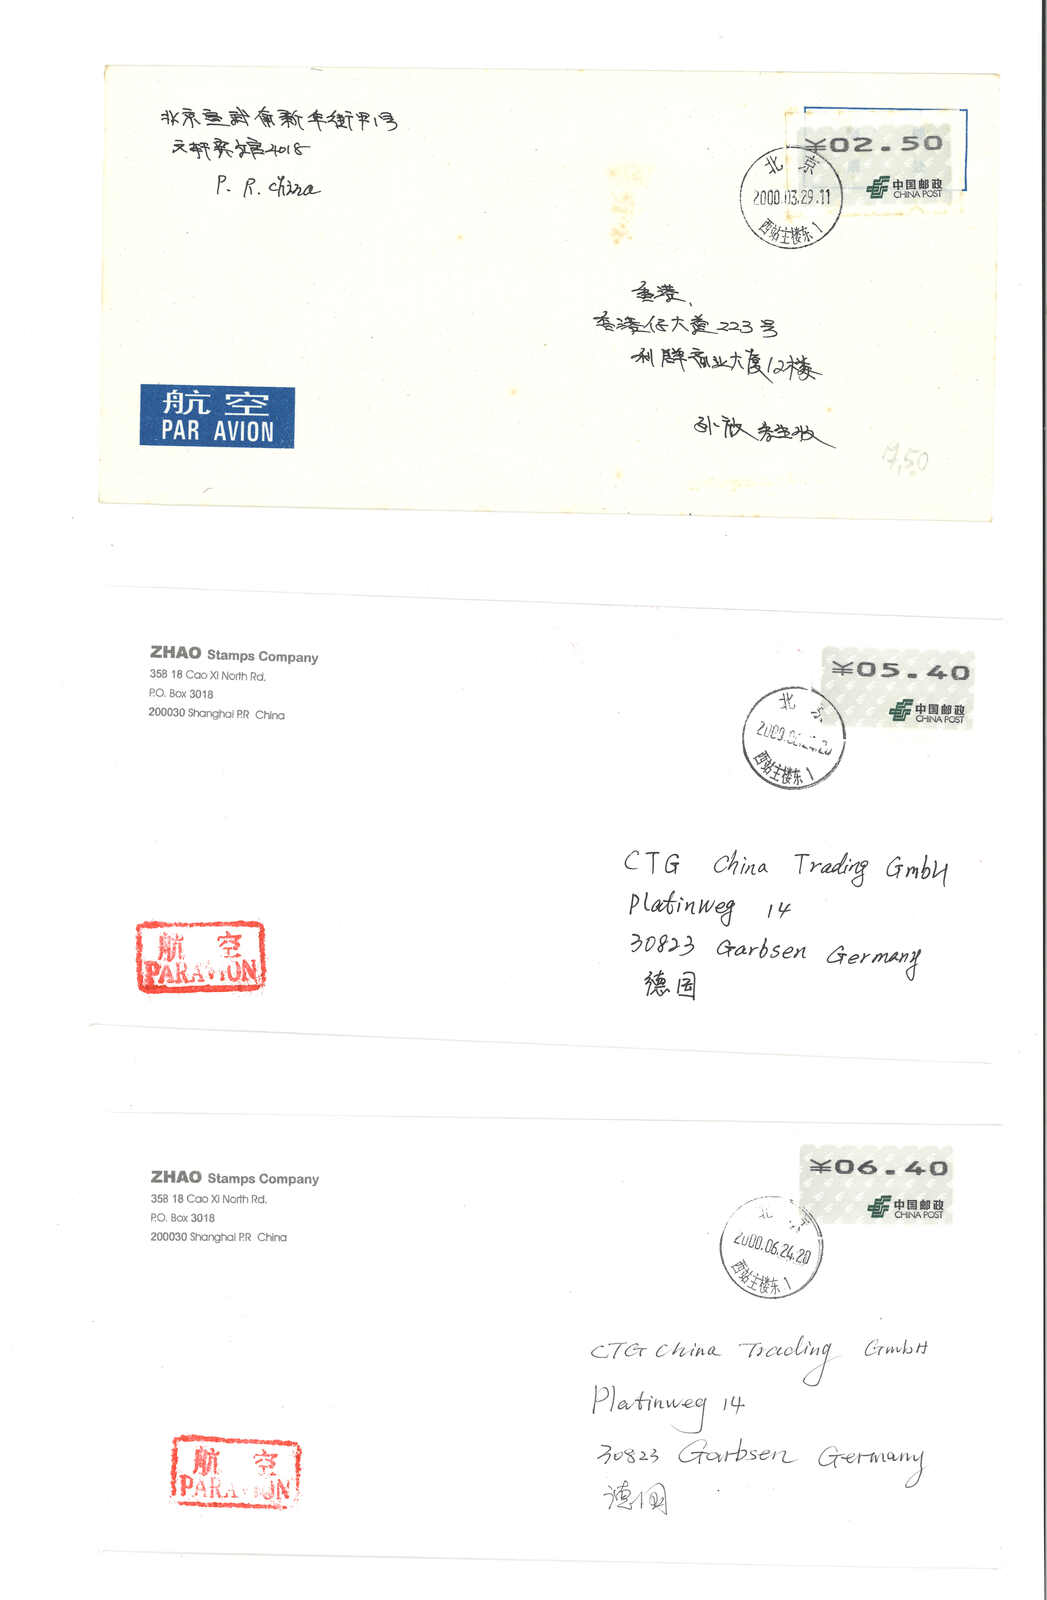 北京宣武
街甲1号
4018
P. R. China
¥02.50
中国邮政
CHINA POST
北京
2000.03.29.11
西站主楼东1
香港
香港仔大道223号
利群商业大厦12楼
航空
PAR AVION
7,50
ZHAO Stamps Company
358 18 Cao Xi North Rd.
P.O. Box 3018
200030 Shanghai P.R China
¥05.40
中国邮政
CHINA POST
北京
西站主楼东1
CTG China Trading GmbH
Platinweg 14
30823 Garbsen Germany
德国
航空
PARAVION
ZHAO Stamps Company
358 18 Cao Xi North Rd.
P.O. Box 3018
200030 Shanghai P.R China
¥06.40
中国邮政
CHINA POST
北京
2000.06.24.20
西站主楼东1
CTG China Trading GmbH
Platinweg 14
30823 Garbsen Germany
德国
航空
PARAVION